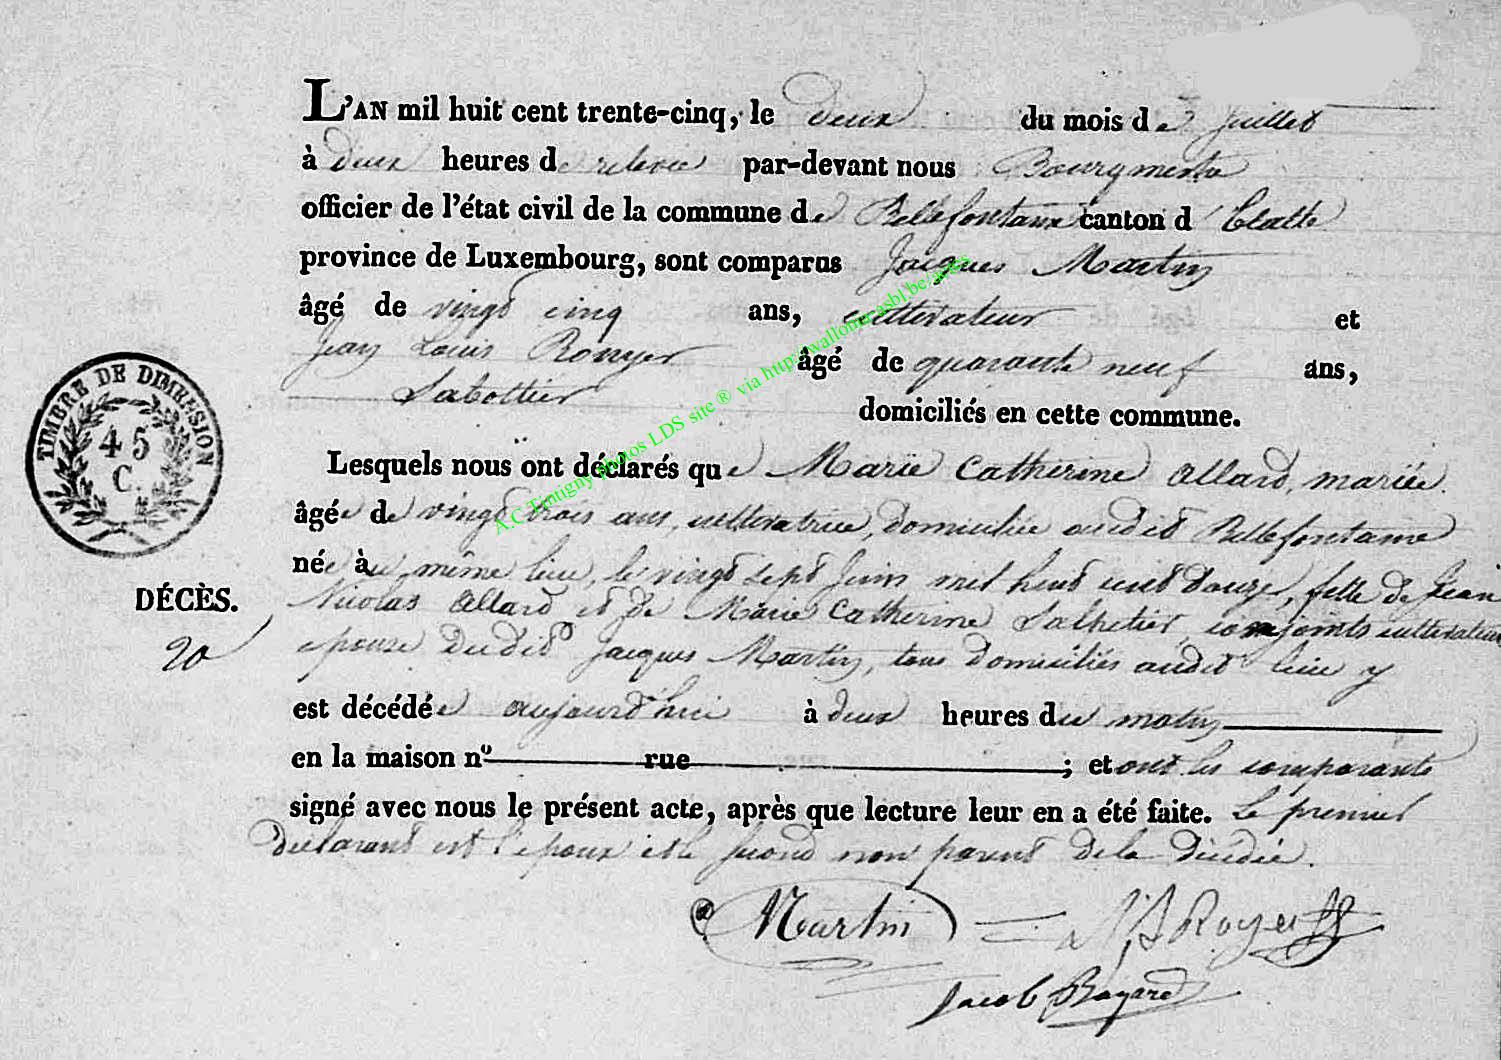 L'AN mil huit cent trente-cinq, le deux du mois de Juillet
à deux heures de relevée par-devant nous Bourgmestre
officier de l'état civil de la commune de Bellefontaine canton d'Etalle
province de Luxembourg, sont comparus Jacques Martin
âgé de vingt cinq ans, cultivateur et
Jean Louis Ronyer âgé de quarante neuf ans,
Sabottier domiciliés en cette commune.
Lesquels nous ont déclarés que Marie Catherine Allard, mariée
âgée de vingt trois ans, cultivatrice, domiciliée audit Bellefontaine
née au même lieu, le vingt sept Juin mil huit cent douze, fille de Jean
Nicolas Allard et de Marie Catherine Salpetier, conjoints cultivateurs
epouze dudit Jacques Martin, tous domiciliés audit lieu y
est décédée aujourd'hui à deux heures du matin
en la maison nº rue ; et ont les comparants
signé avec nous le présent acte, après que lecture leur en a été faite. Le premier
déclarant est l'époux et le second non parent de la décédée.
TIMBRE DE DIMENSION
45
C.
DÉCÈS.
20
Martin
Jacob Bayard
A.C Tintigny photos LDS site ® via http://wallonia.asbl.be/actes